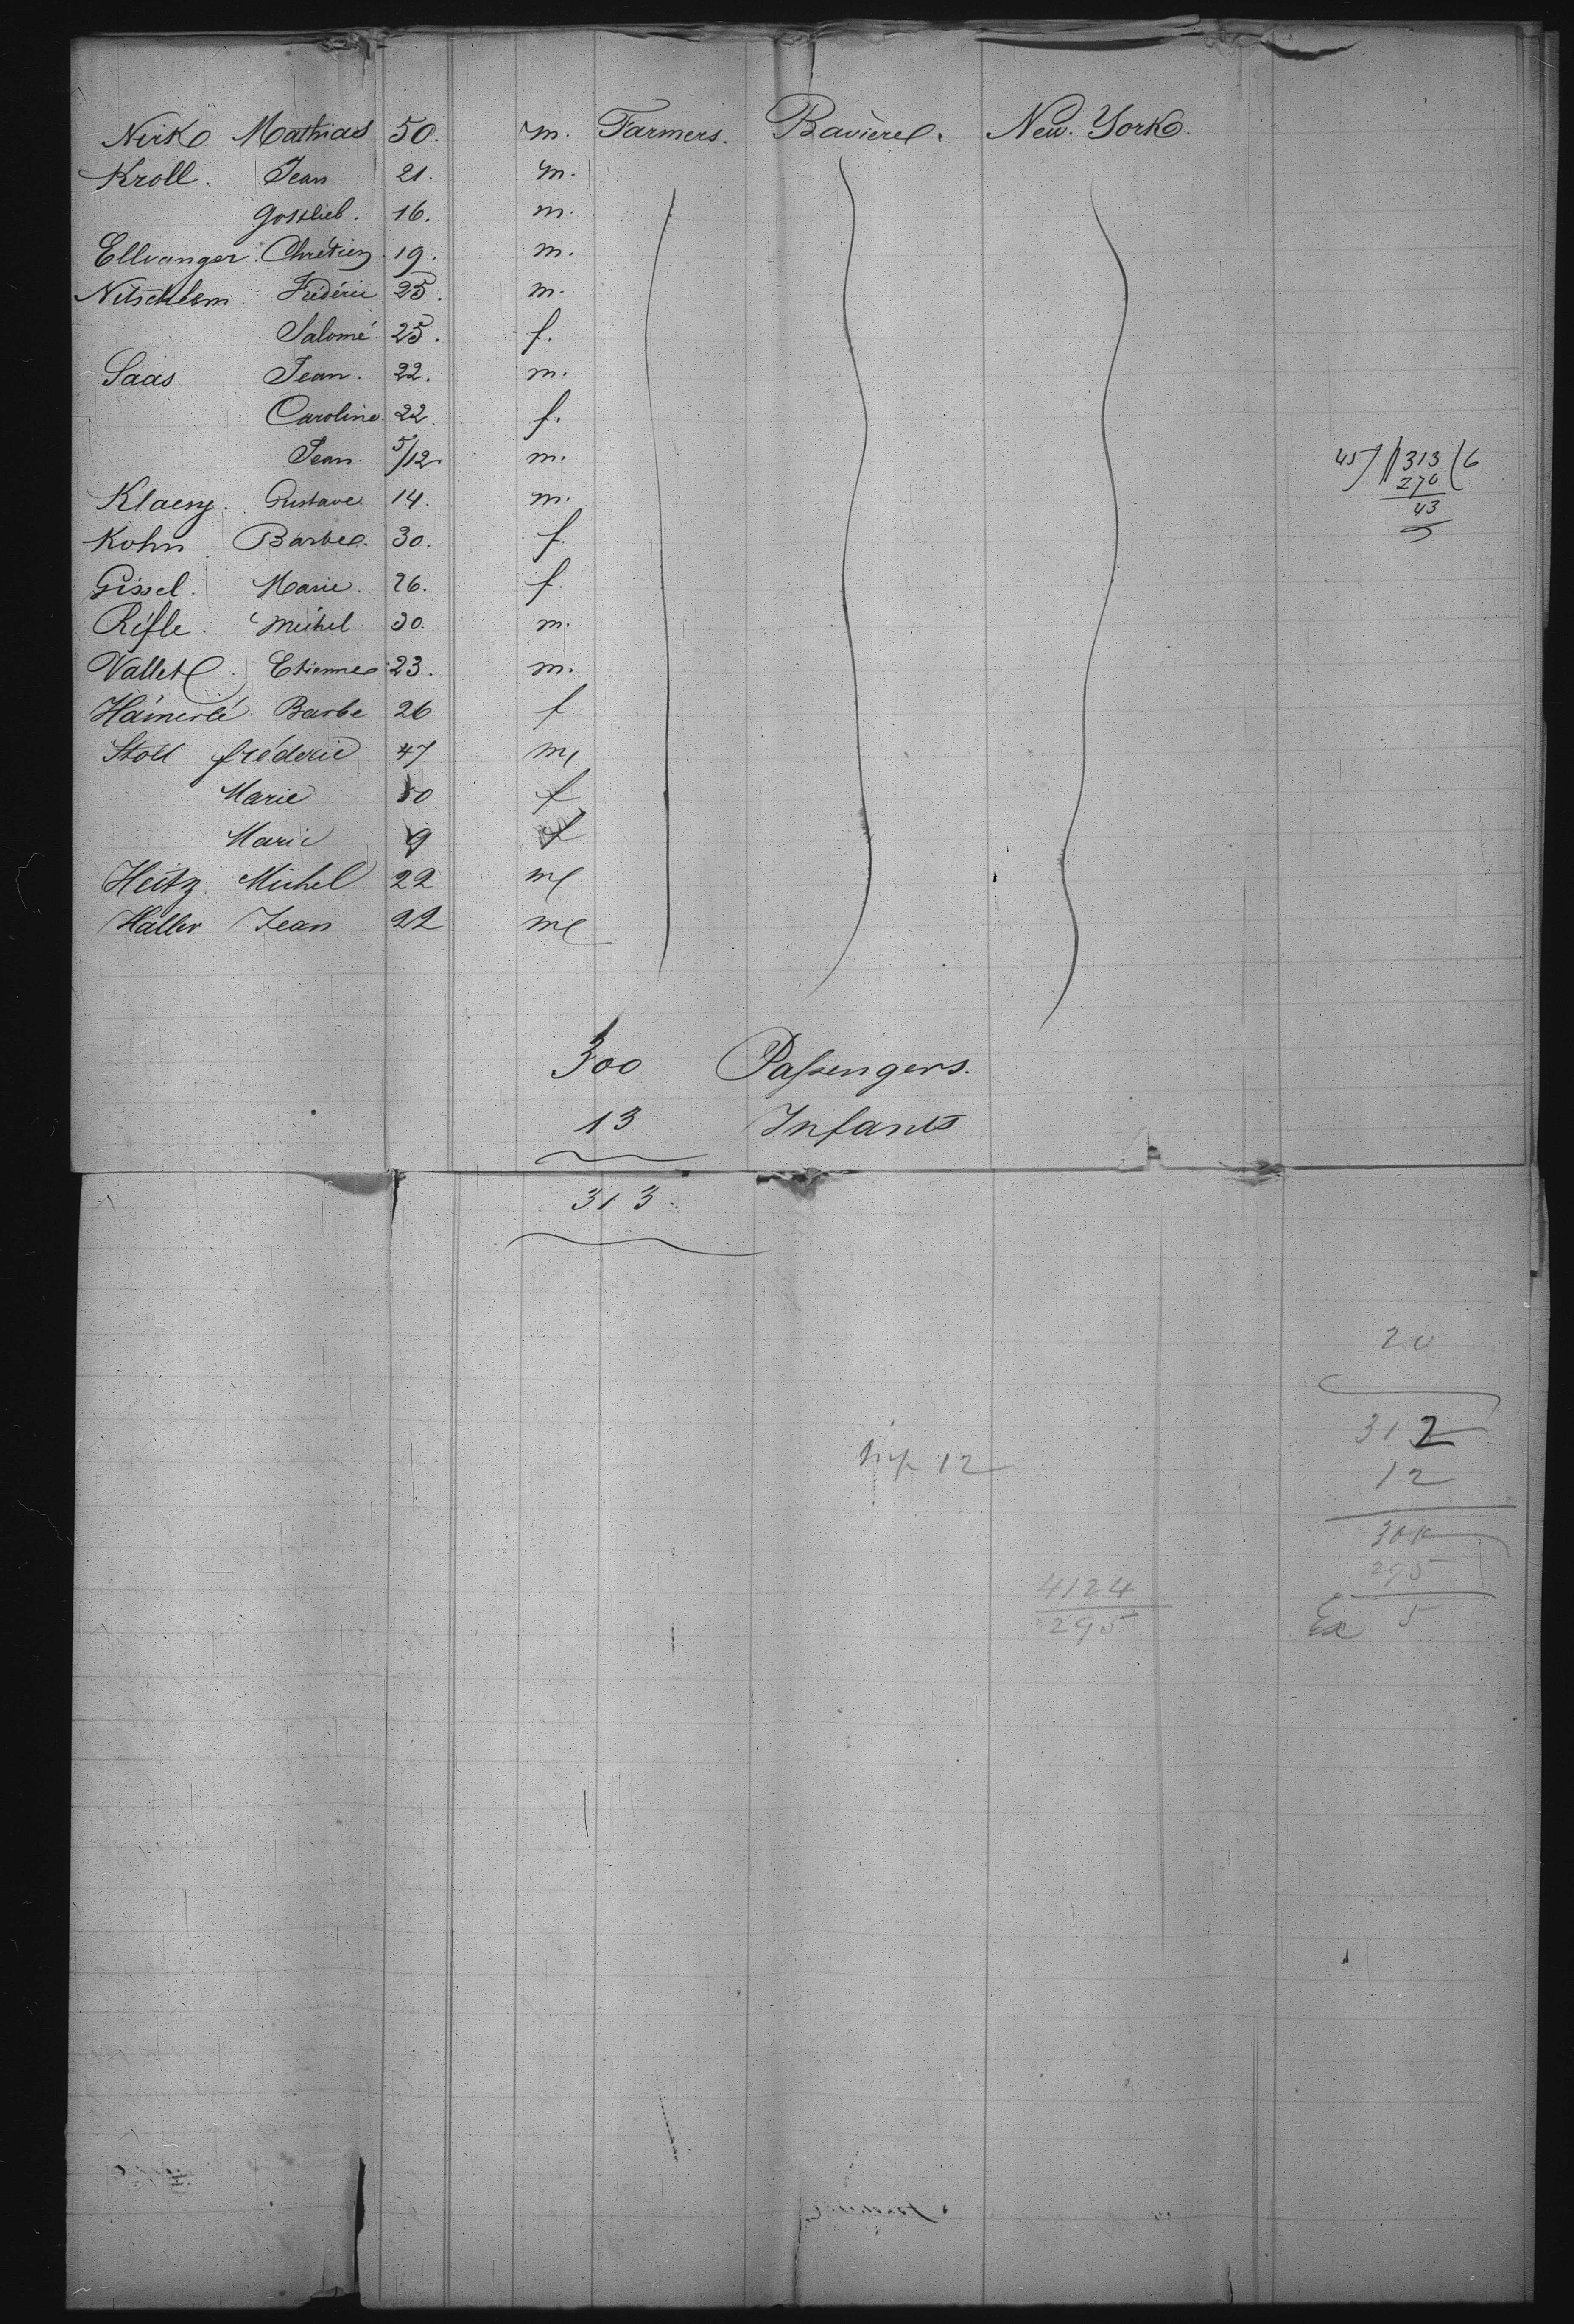 Nirk Mathias 50. m. Farmers. Bavière. New. York.
Kroll. Jean 21. m.
Gottlieb. 16. m.
Ellvanger. Chrétien 19. m.
Nitschlem Frédéric 25. m.
Salomé 25. f.
Saas Jean. 22. m.
Caroline 22. f.
Jean. 5/12 m.
45)313(6
270
43
Klaeny. Gustave 14. m.
Kohn Barbe. 30. f.
Gissel. Marie. 26. f.
Rifle. Michel 30. m.
Vallet Etienne 23. m.
Hämerlé Barbe 26 f
Stoll fréderic 47 m
Marie 50 f
Marie 9 f
Heitz Michel 22 m
Haller Jean 22 m
300 Passengers.
13 Infants
313
20
312
inf 12
12
300
295
4124
295
Ex 5